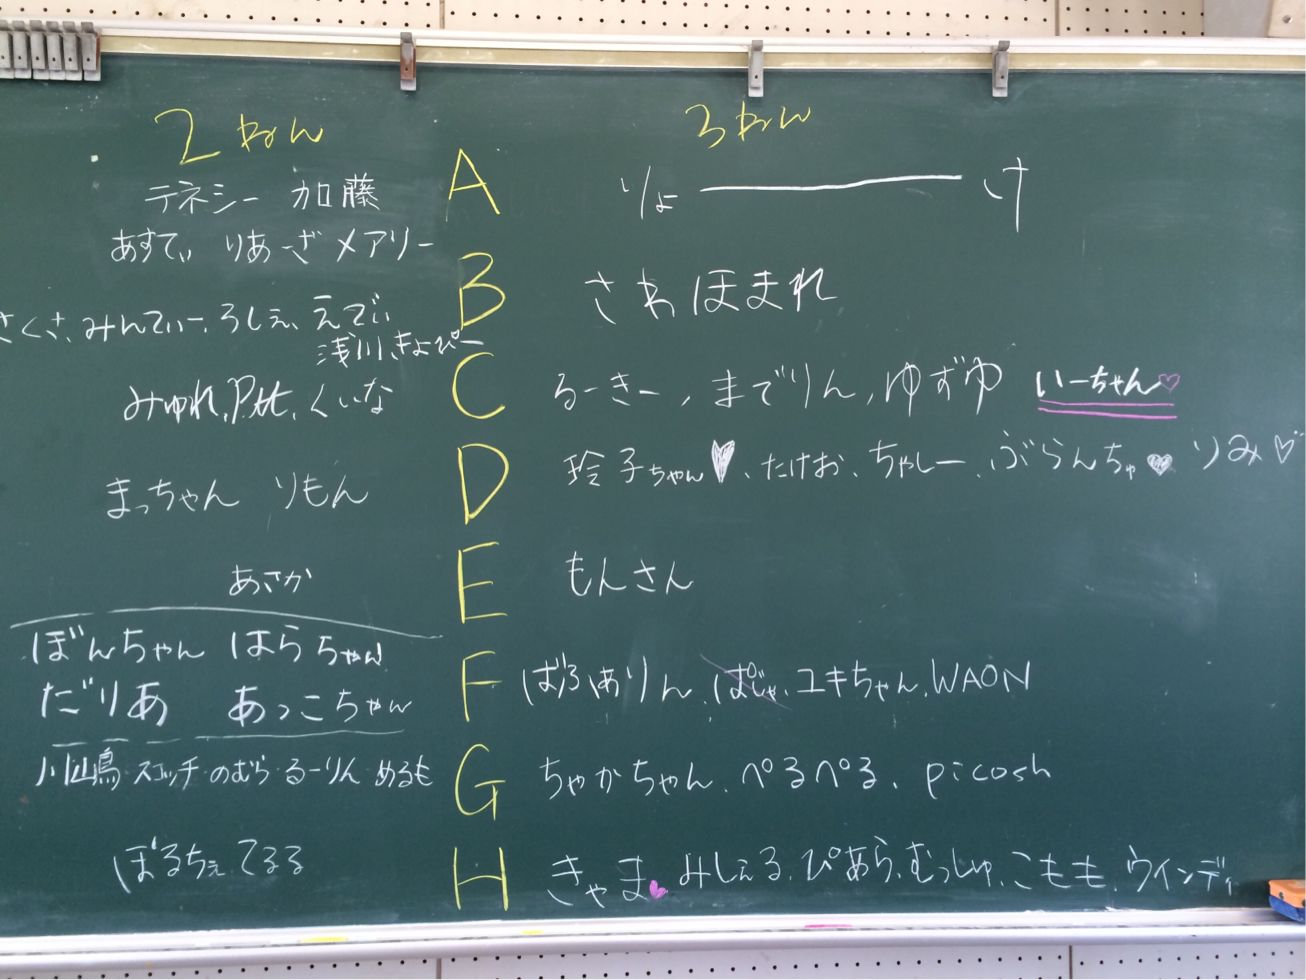 2ねん 3ねん
テネシー 加藤 A りょ―――け
あすてぃ りあーざ メアリー
B さわ ほまれ
さくさ、みんてぃー、ろしぇ、えでぃ
浅川、きよぴー
みゅれ、Pれ、くいな C るーきー、までりん、ゆずゆ いーちゃん♡
まっちゃん りもん D 玲子ちゃん♥、たけお、ちゃしー、ぶらんちゅ♥ りみ♡
あさか E もんさん
ぼんちゃん はらちゃん
だりあ あっこちゃん F ばふぁりん、ぱじゃ、ユキちゃん、WAON
川島 スコッチ のむら るーりん めるも G ちゃかちゃん、ぺるぺる、picosh
ぽるちぇ、てるる H きゃま♥みしぇる、ぴあら、むっしゅ、こもも、ウインディ